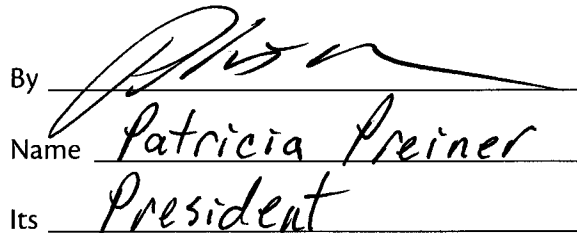 By
Name Patricia Preiner
Its President